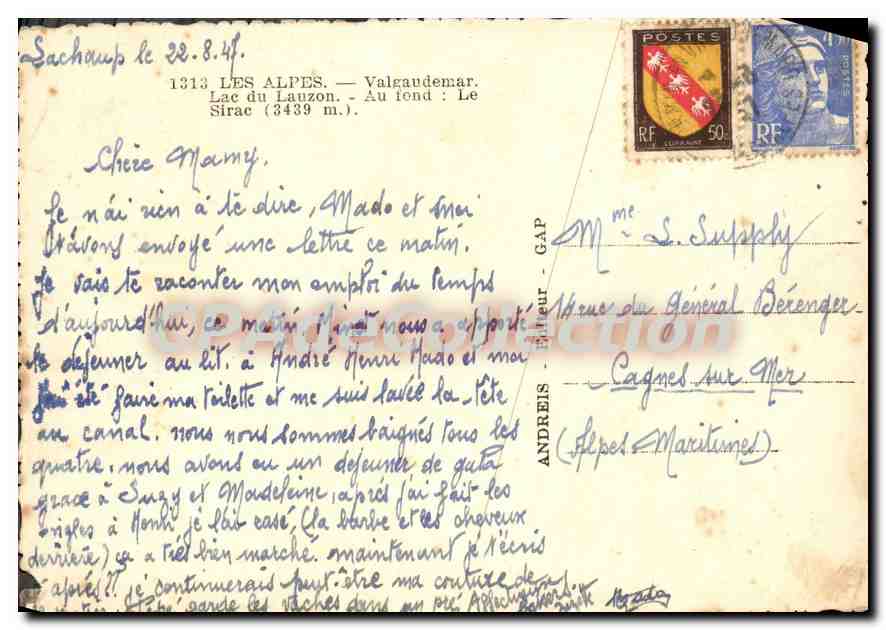 Lachaup le 22.8.47.
1313 LES ALPES. — Valgaudemar.
Lac du Lauzon. - Au fond : Le
Sirac (3439 m.).
POSTES
RF 50c
LORRAINE
POSTES
RF
Chère Mamy.
Je n'ai rien à te dire, Mado et moi
t'avons envoyé une lettre ce matin.
Je vais te raconter mon emploi du temps
d'aujourd'hui, ce matin nous a apporté
le dejeuner au lit. à André Henri Mado et moi
j'ai été faire ma toilette et me suis lavée la tête
au canal. nous nous sommes baignés tous les
quatre. nous avons eu un dejeuner de gala
grace à Suzy et Madeleine, après j'ai fait les
ongles à Henri je l'ai rasé, (la barbe et les cheveux
derrière) ça a très bien marché. maintenant je t'écris
après?? je continuerais peut-être ma couture de
garde les vaches dans un pré Affectueux
baisers.
Mado
ANDREIS - Editeur - GAP
Mme L. Supply
14 rue du Général Bérenger
Cagnes sur Mer
(Alpes Maritimes)
CPA de Collection